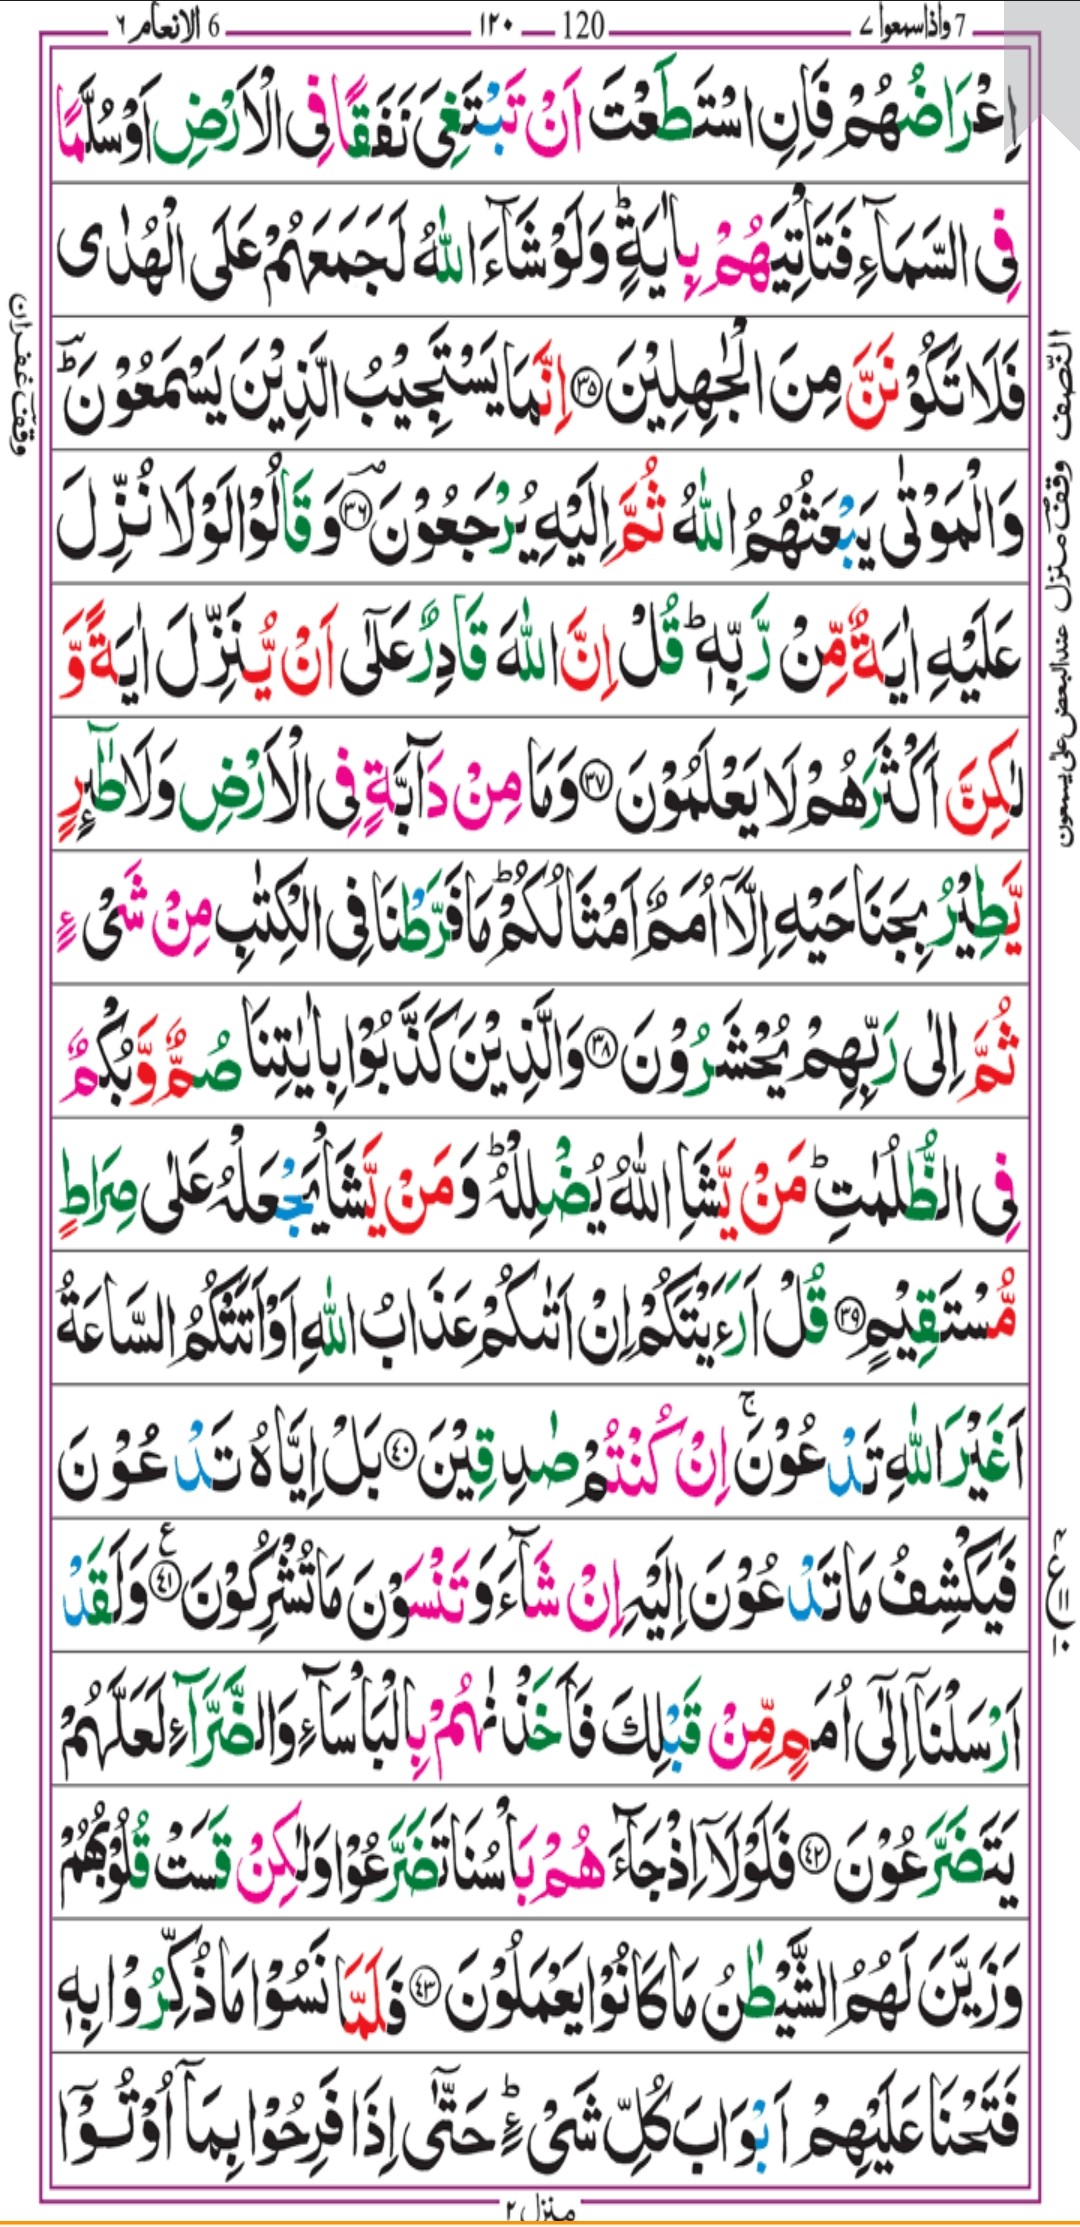 7 واذا سمعوا ٧
120 — ١٢٠
6 الانعام ٦
اِعْرَاضُهُمْ فَاِنِ اسْتَطَعْتَ اَنْ تَبْتَغِیَ نَفَقًا فِی الْاَرْضِ اَوْ سُلَّمًا
فِی السَّمَآءِ فَتَاْتِیَهُمْ بِاٰیَةٍ ؕ وَلَوْ شَآءَ اللّٰهُ لَجَمَعَهُمْ عَلَی الْهُدٰی
فَلَا تَكُوْنَنَّ مِنَ الْجٰهِلِیْنَ ﴿۳۵﴾ اِنَّمَا یَسْتَجِیْبُ الَّذِیْنَ یَسْمَعُوْنَ ؕؔ
وَالْمَوْتٰی یَبْعَثُهُمُ اللّٰهُ ثُمَّ اِلَیْهِ یُرْجَعُوْنَ ﴿۳۶﴾ؔ وَ قَالُوْا لَوْلَا نُزِّلَ
عَلَیْهِ اٰیَةٌ مِّنْ رَّبِّهٖ ؕ قُلْ اِنَّ اللّٰهَ قَادِرٌ عَلٰۤی اَنْ یُّنَزِّلَ اٰیَةً وَّ
لٰكِنَّ اَكْثَرَهُمْ لَا یَعْلَمُوْنَ ﴿۳۷﴾ وَمَا مِنْ دَآبَّةٍ فِی الْاَرْضِ وَلَا طٰٓىِٕرٍ
یَّطِیْرُ بِجَنَاحَیْهِ اِلَّاۤ اُمَمٌ اَمْثَالُكُمْ ؕ مَا فَرَّطْنَا فِی الْكِتٰبِ مِنْ شَیْءٍ
ثُمَّ اِلٰی رَبِّهِمْ یُحْشَرُوْنَ ﴿۳۸﴾ وَالَّذِیْنَ كَذَّبُوْا بِاٰیٰتِنَا صُمٌّ وَّبُكْمٌ
فِی الظُّلُمٰتِ ؕ مَنْ یَّشَاِ اللّٰهُ یُضْلِلْهُ ؕ وَمَنْ یَّشَاْ یَجْعَلْهُ عَلٰی صِرَاطٍ
مُّسْتَقِیْمٍ ﴿۳۹﴾ قُلْ اَرَءَیْتَكُمْ اِنْ اَتٰىكُمْ عَذَابُ اللّٰهِ اَوْ اَتَتْكُمُ السَّاعَةُ
اَغَیْرَ اللّٰهِ تَدْعُوْنَ ۚ اِنْ كُنْتُمْ صٰدِقِیْنَ ﴿۴۰﴾ بَلْ اِیَّاهُ تَدْعُوْنَ
فَیَكْشِفُ مَا تَدْعُوْنَ اِلَیْهِ اِنْ شَآءَ وَ تَنْسَوْنَ مَا تُشْرِكُوْنَ ﴿۴۱﴾ع وَلَقَدْ
اَرْسَلْنَاۤ اِلٰۤی اُمَمٍ مِّنْ قَبْلِكَ فَاَخَذْنٰهُمْ بِالْبَاْسَآءِ وَالضَّرَّآءِ لَعَلَّهُمْ
یَتَضَرَّعُوْنَ ﴿۴۲﴾ فَلَوْلَاۤ اِذْ جَآءَهُمْ بَاْسُنَا تَضَرَّعُوْا وَلٰكِنْ قَسَتْ قُلُوْبُهُمْ
وَزَیَّنَ لَهُمُ الشَّیْطٰنُ مَا كَانُوْا یَعْمَلُوْنَ ﴿۴۳﴾ فَلَمَّا نَسُوْا مَا ذُكِّرُوْا بِهٖ
فَتَحْنَا عَلَیْهِمْ اَبْوَابَ كُلِّ شَیْءٍ ؕ حَتّٰۤی اِذَا فَرِحُوْا بِمَاۤ اُوْتُوْۤا
النصف
وقف منزل عند البعض علی یسمعون
وقف غفران
ع
منزل ٢